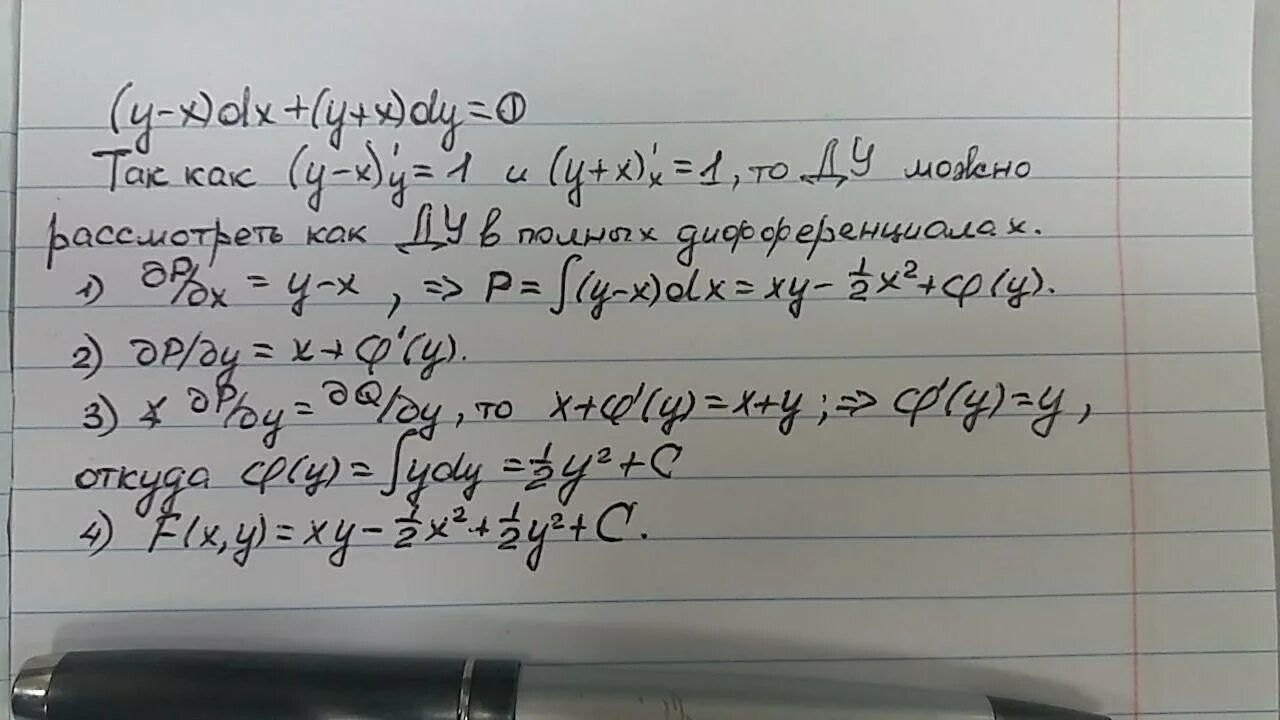 (y-x)dx+(y+x)dy=0
Так как (y-x)'y=1 и (y+x)'x=1, то ДУ можно
рассмотреть как ДУ в полных дифференциалах.
1) ∂P/∂x = y-x, => P = ∫(y-x)dx = xy - 1/2 x² + φ(y).
2) ∂P/∂y = x + φ'(y).
3) ∂P/∂y = ∂Q/∂y, то x+φ'(y) = x+y; => φ'(y)=y,
откуда φ(y) = ∫ydy = 1/2 y² + C
4) F(x,y) = xy - 1/2 x² + 1/2 y² + C.